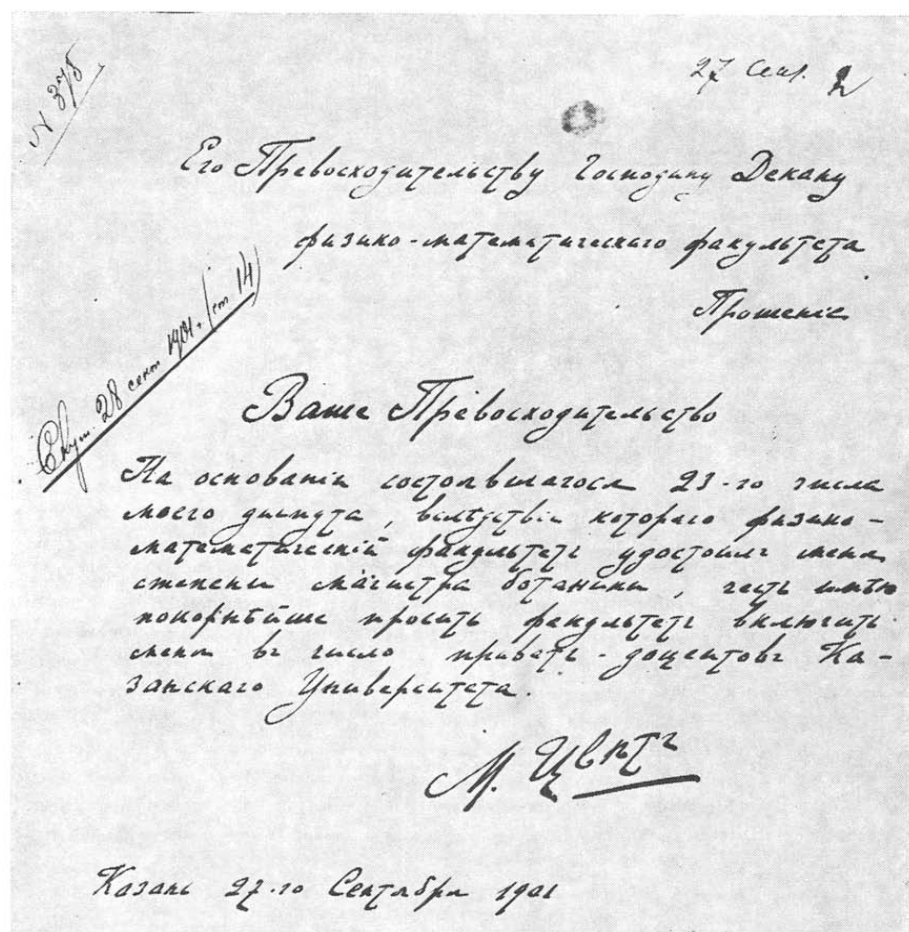 № 376
27 Сент.
Его Превосходительству Господину Декану
физико-математическаго факультета
Прошеніе
28 сент 1901. (ст 14)
Ваше Превосходительство
На основаніи состоявшагося 23-го числа
моего диспута, вслѣдствіе котораго физико-
математическій факультетъ удостоилъ меня
степени магистра ботаники, честь имѣю
покорнѣйше просить факультетъ включить
меня въ число приватъ-доцентовъ Ка-
занскаго Университета.
М. Цвѣтъ
Казань 27-го Сентября 1901